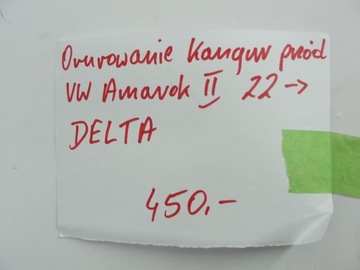 Orurowanie Kangur przód
VW Amarok II 22 →
DELTA
450.-